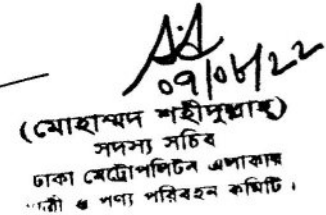 09/06/22
(মোহাম্মদ শহীদুল্লাহ)
সদস্য সচিব
ঢাকা মেট্রোপলিটন এলাকার
ও পণ্য পরিবহন কমিটি।